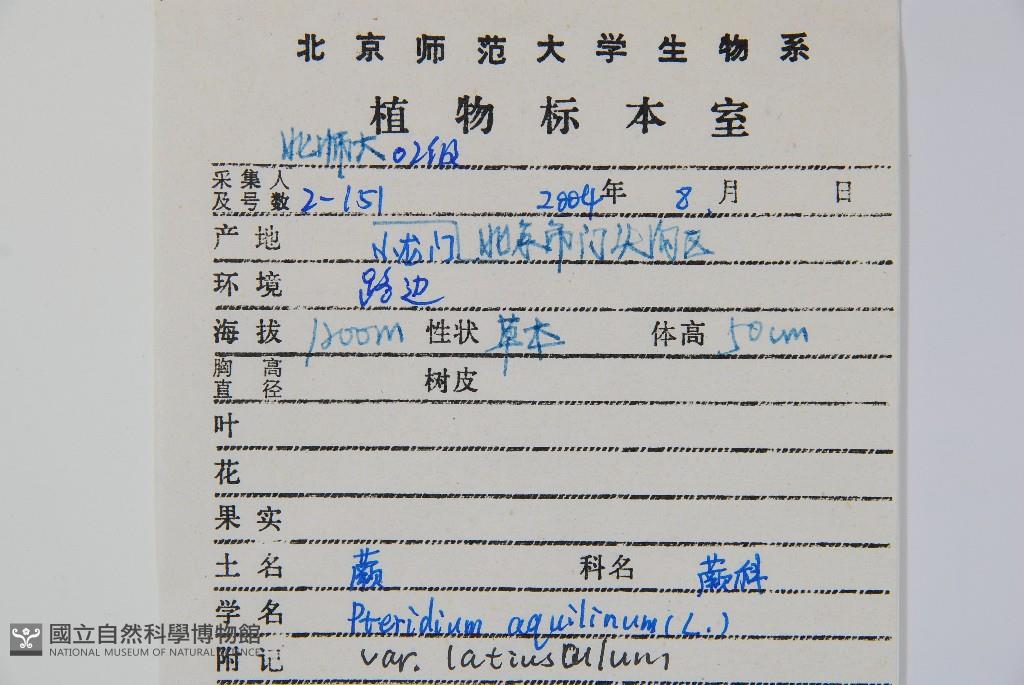 北京师范大学生物系
植物标本室
北师大 02级
采集人及号数 2-151 2004年 8月 日
产地 小龙门 北京市门头沟区
环境 路边
海拔 1200m 性状 草本 体高 50cm
胸高直径 树皮
叶
花
果实
土名 蕨 科名 蕨科
学名 Pteridium aquilinum (L.)
附记 var. latiusculum
國立自然科學博物館
NATIONAL MUSEUM OF NATURAL SCIENCE